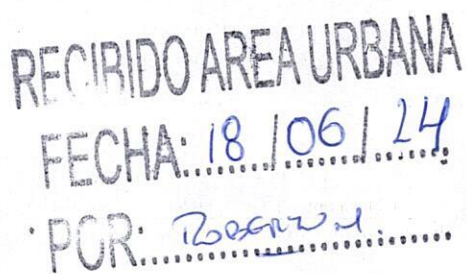 RECIBIDO AREA URBANA
FECHA: 18 / 06 / 24
POR: ROBERTO M.